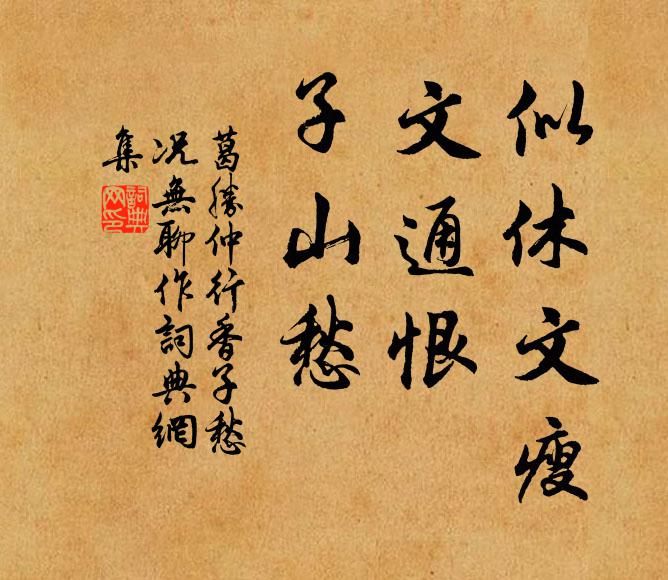 似休文瘦
文通恨
子山愁
葛勝仲行香子愁
况無聊作詞典網
集
詞典
网印